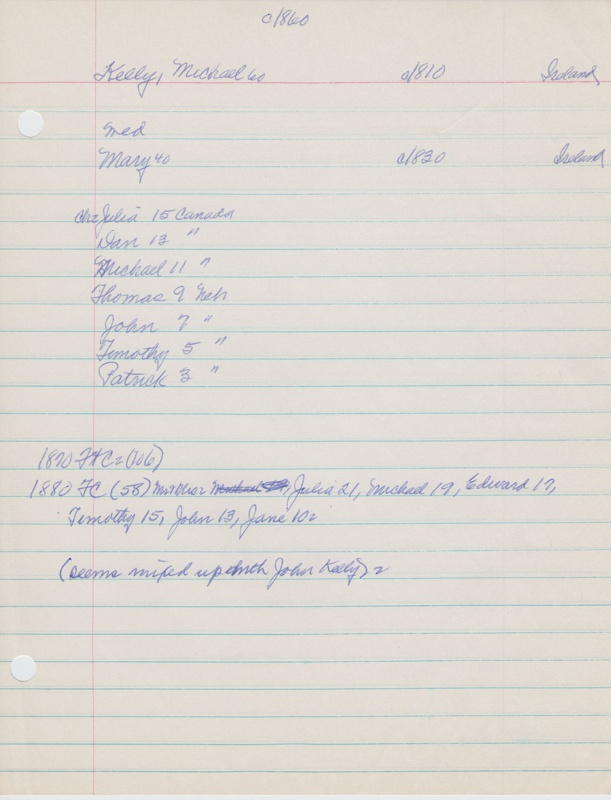 c1860
Kelly, Michael 60 c1810 Ireland
med
Mary 40 c1830 Ireland
ch: Julia 15 Canada
Dan 13 "
Michael 11 "
Thomas 9 Neb
John 7 "
Timothy 5 "
Patrick 3 "
1870 FC: (106)
1880 FC (58) Julia 21, Michael 19, Edward 17,
Timothy 15, John 13, Jane 10:
(seems mixed up with John Kelly):